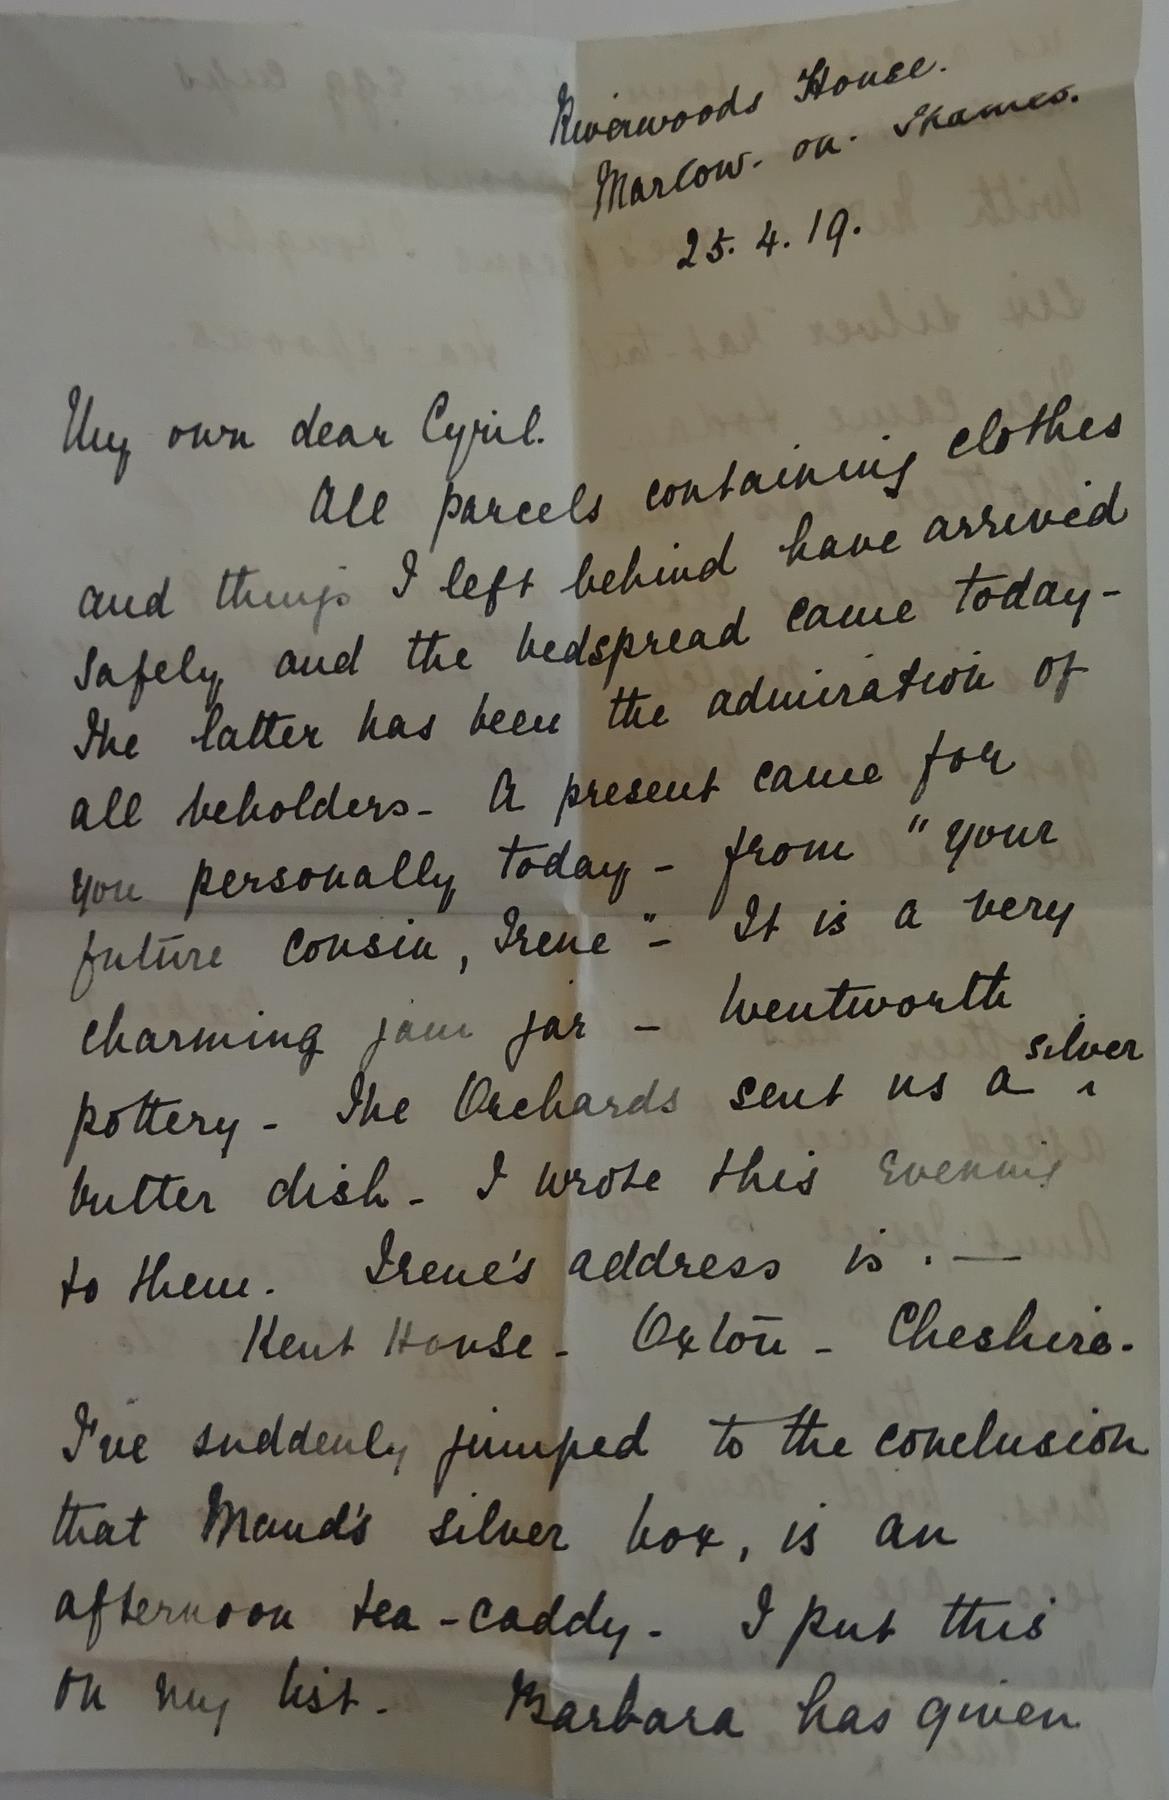 Riverwoods House.
Marlow. on. Thames.
25. 4. 19.
My own dear Cyril.
All parcels containing clothes
and things I left behind have arrived
safely and the bedspread came today-
The latter has been the admiration of
all beholders- A present came for
you personally today - from "your
future cousin, Irene"- It is a very
charming jam jar - Wentworth
pottery - The Orchards sent us a silver
butter dish - I wrote this evening
to them. Irene's address is :—
Kent House - Oxton - Cheshire.
I've suddenly jumped to the conclusion
that Maud's silver box, is an
afternoon tea-caddy - I put this
on my list - Barbara has given